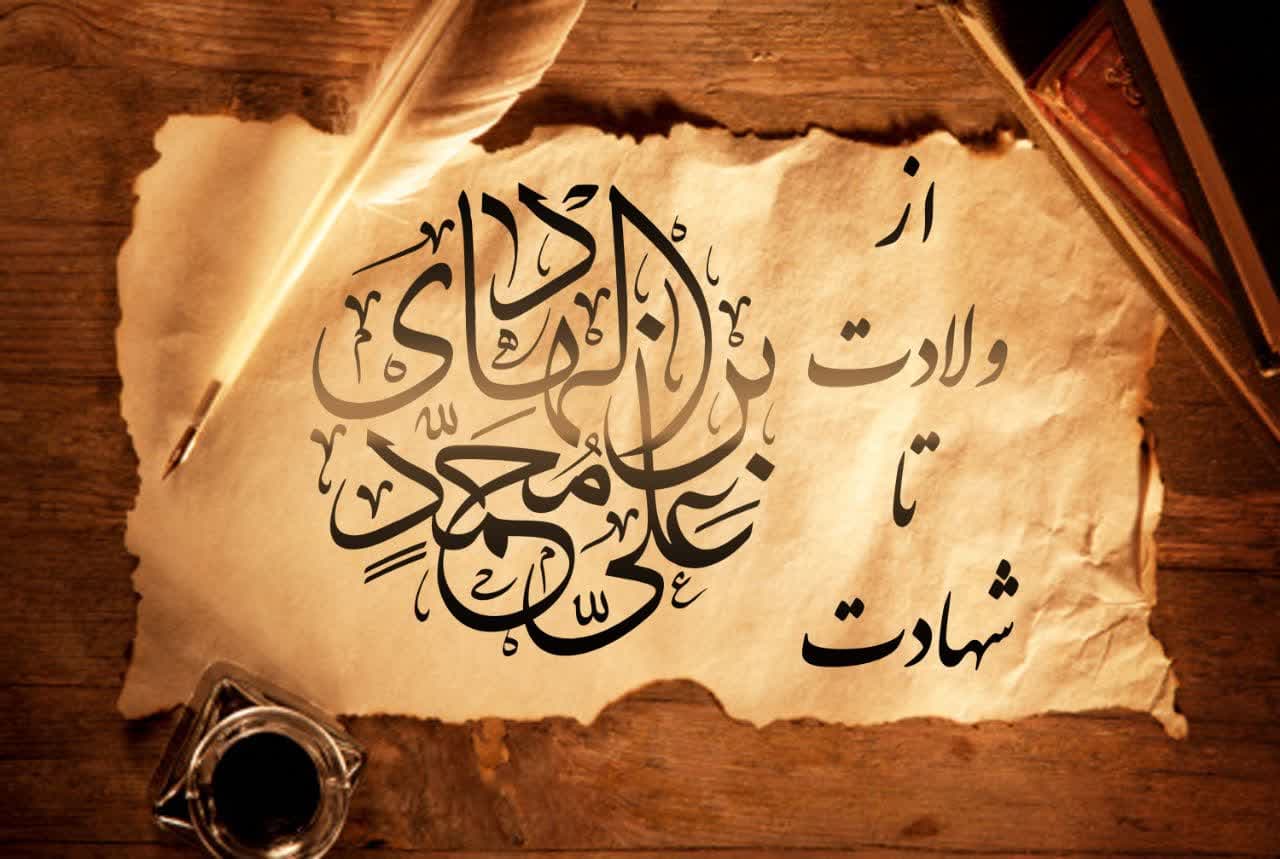 از
ولادت
تا
شهادت
عَلِیِّ بنِ مُحَمَّدٍ الهادی